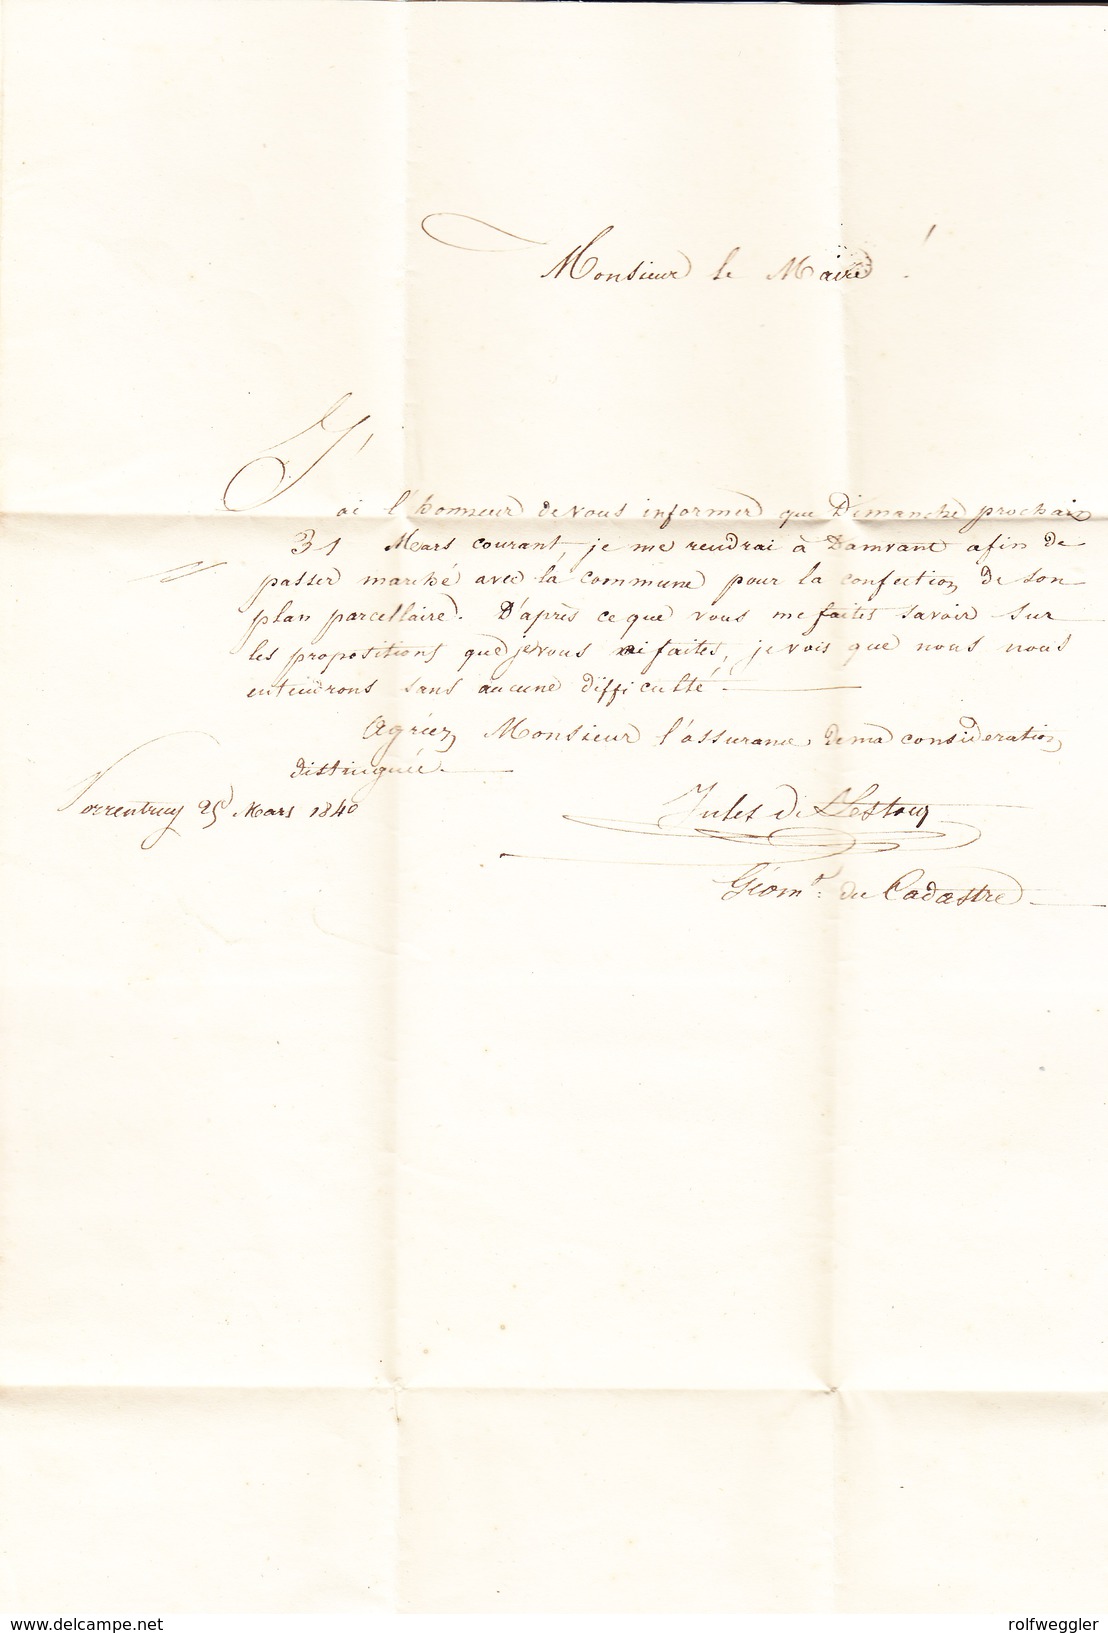 Monsieur le Maire !
J'
ai l'honneur de vous informer que Dimanche prochain
31 Mars courant, je me rendrai à Damvant afin de
passer marché avec la commune pour la confection de son
plan parcellaire. D'après ce que vous me faites savoir sur
les propositions que je vous ai faites, je vois que nous nous
entendrons sans aucune difficulté.
Agréez, Monsieur l'assurance de ma considération
distinguée.
Porrentruy 25 Mars 1840
Jules de
Géom.e du Cadastre
www.delcampe.net
rolfweggler